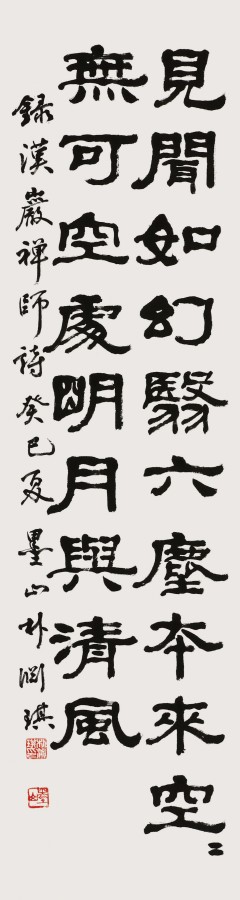 見聞如幻翳六塵本來空〻
無可空處明月與清風
錄漢巖禅師詩癸巳夏墨山朴淵琪